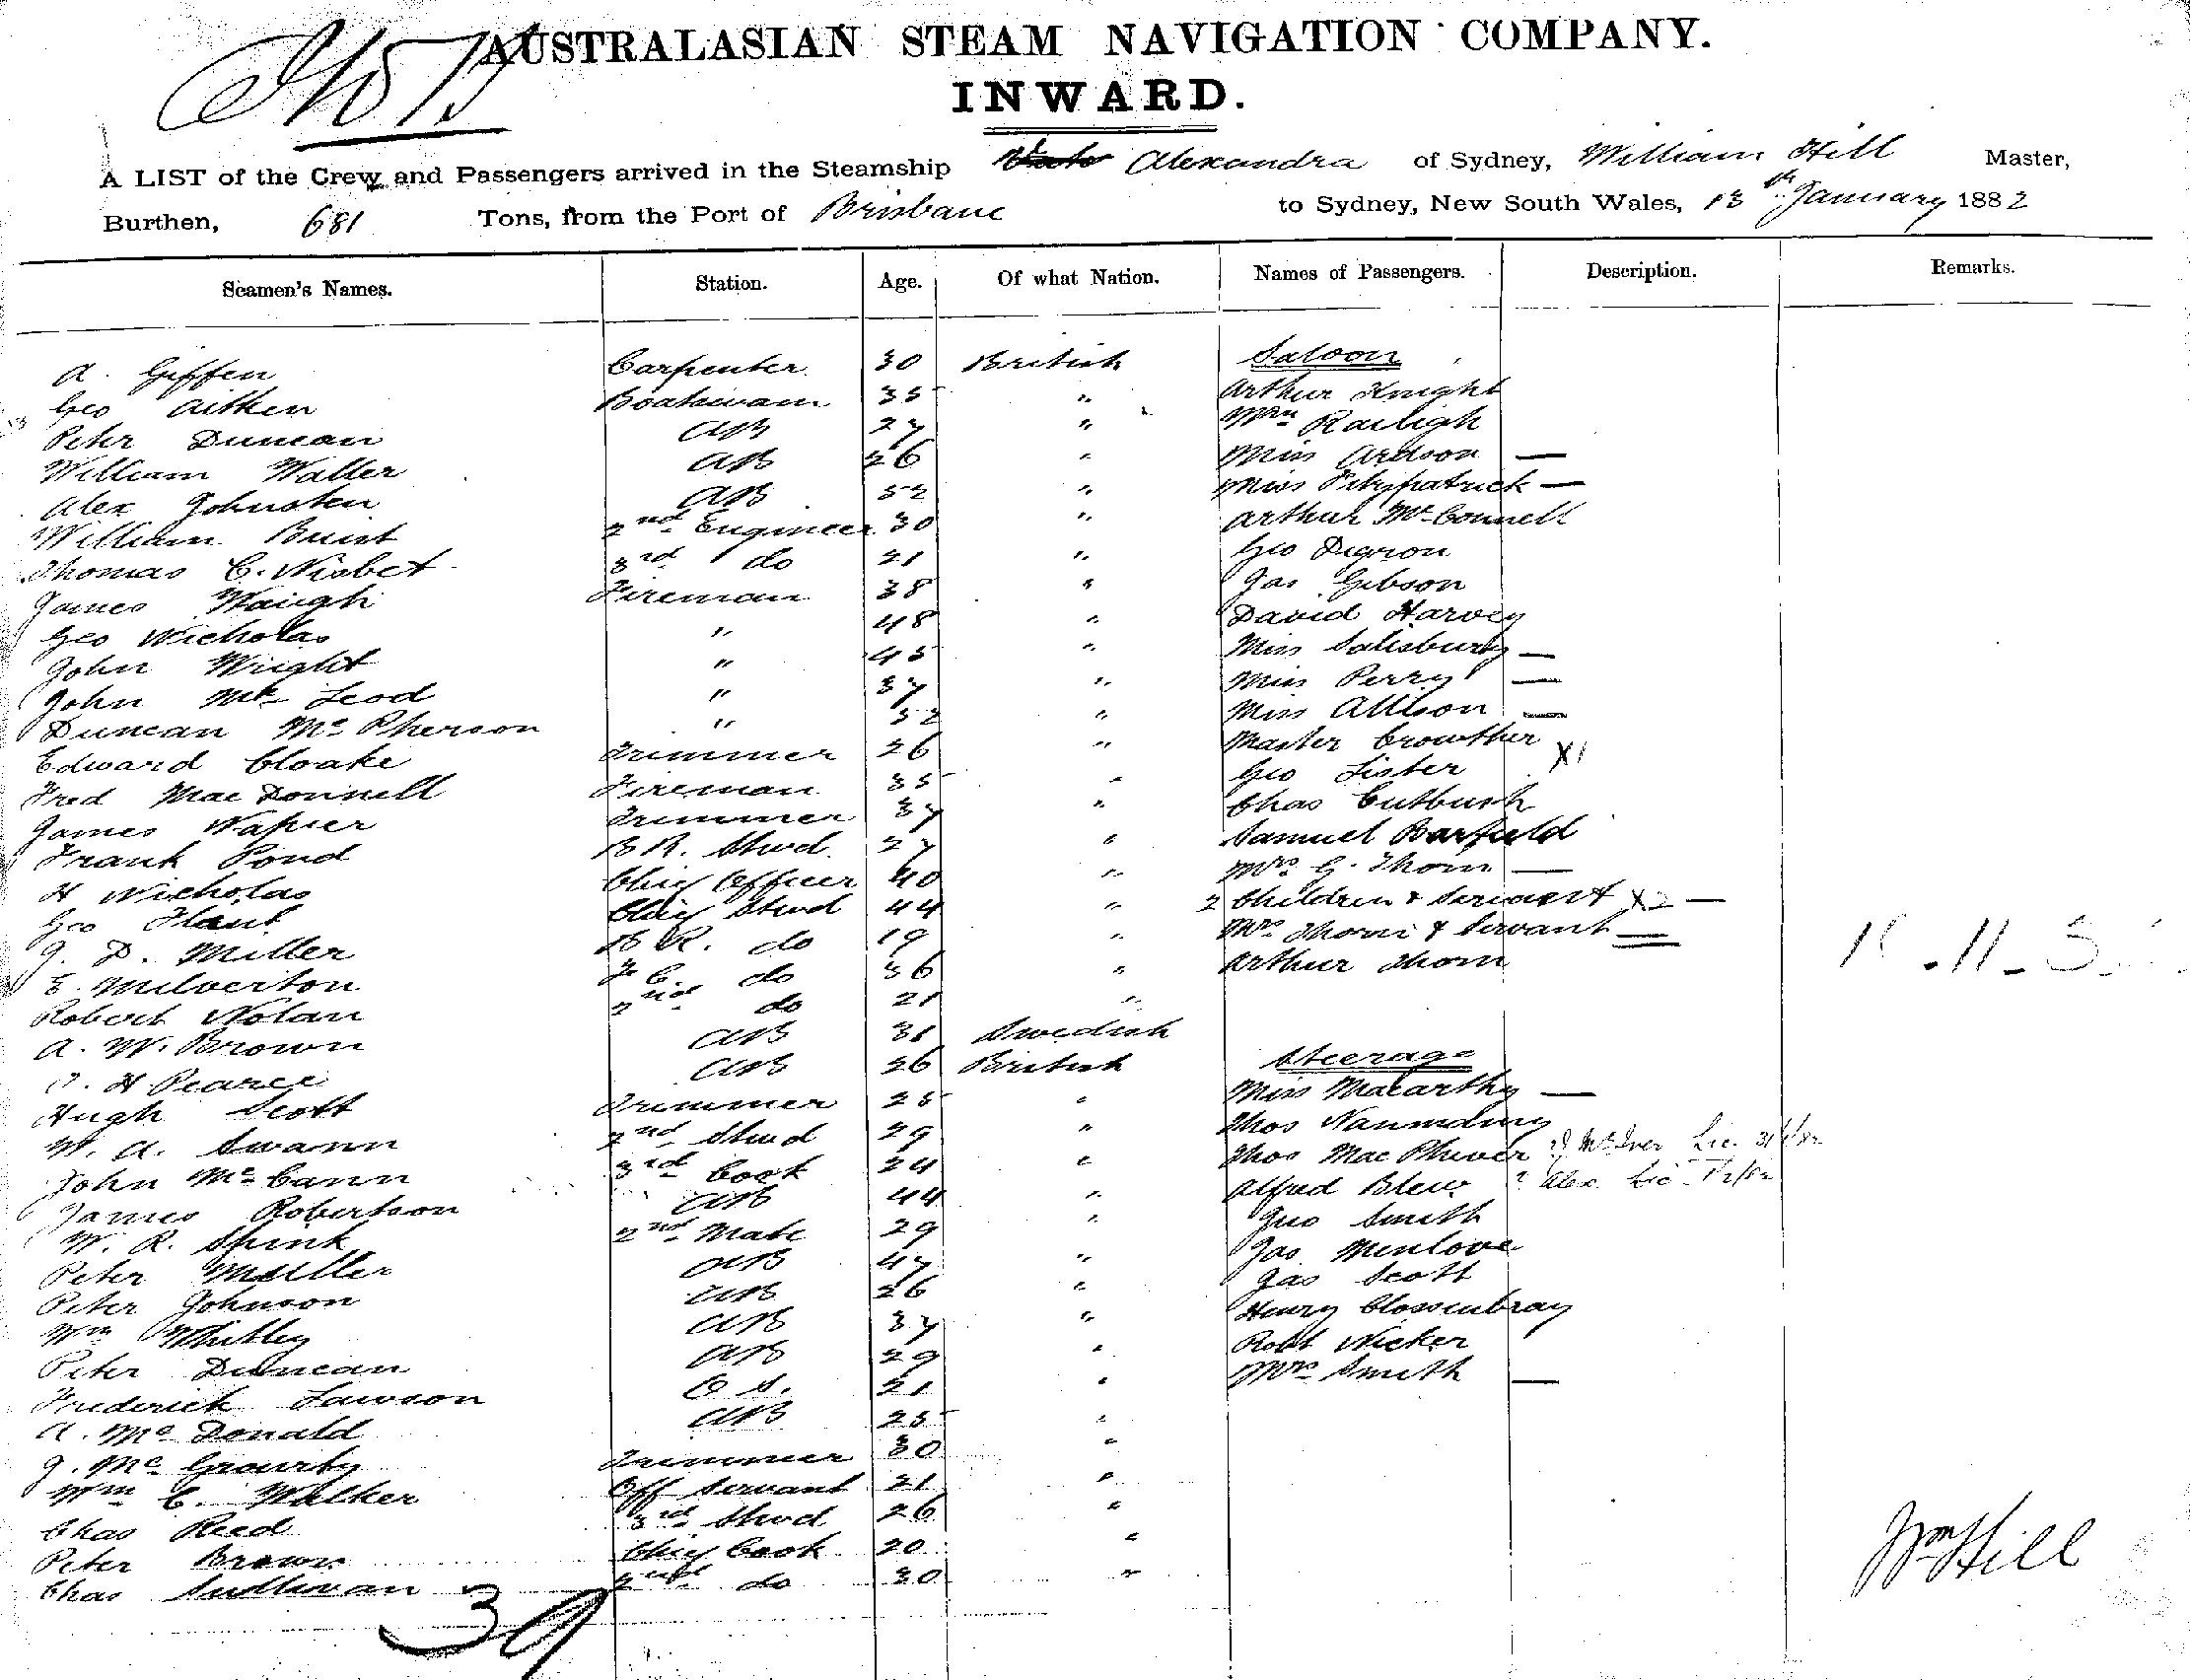 AUSTRALASIAN STEAM NAVIGATION COMPANY.
INWARD.
A LIST of the Crew and Passengers arrived in the Steamship Alexandra of Sydney, William Hill Master,
Burthen, 681 Tons, from the Port of Brisbane to Sydney, New South Wales, 13th January 1882
Seamen's Names. Station. Age. Of what Nation. Names of Passengers. Description. Remarks.
Saloon
A. Giffen Carpenter 30 British Arthur Knight
Geo Aitken Boatswain 35 " Mrs Raileigh
Peter Duncan AB 27 " Miss Ardson —
William Waller AB 26 " Miss Fitzpatrick —
Alex Johnston AB 52 " Arthur McConnell
William Buist 2nd Engineer 30 " Geo
Thomas C. Nisbet 3rd do 21 " Jas Gibson
James Waugh Fireman 38 " David Harvey
Geo Nicholas " 48 " Miss Salisbury —
John Wright " 45 " Miss Perry —
John McLeod " 37 " Miss Allison —
Duncan McPherson " 32 " Master Crowther X1
Edward Cloake Trimmer 26 " Geo Lister
Fred MacDonnell Fireman 35 " Chas Cutbush
James Napier Trimmer 37 " Samuel Barfield
Frank Pond B R. Stwd. 27 " Mrs G. Thorn —
H Nicholas Chief Officer 40 " 2 Children & Servant X2 —
Geo Flaut Chief Stwd 44 " Mrs Thorn & Servant —
J. D. Miller B R. do 19 " Arthur Thorn
E. Milverton F C. do 36 "
Robert Nolan 2nd do 21 "
A. W. Brown AB 31 Swedish
Steerage
H. Pearce AB 26 British Miss Macarthy —
Hugh Scott Trimmer 25 " Thos
W. A. Swann 2nd Stwd 29 " Thos Mac
John McCann 3rd Cook 24 " Alfred Blew
James Robertson AB 44 " Geo Smith
W. R. Spink 2nd Mate 29 " Jas Menlove
Peter Mueller AB 47 " Jas Scott
Peter Johnson AB 26 " Henry Clossenbray
Wm Whitley AB 37 " Robt Nicker
Peter Duncan AB 29 " Mrs Smith —
Frederick Lawson O S. 21 "
A. McDonald AB 25 "
J. McGrourty Trimmer 30 "
Wm C. Walker Off Servant 21 "
Chas Reed 3rd Stwd 26 "
Peter Brown Chief Cook 20 "
Chas Sullivan 2nd do 30 "
39
Wm Hill